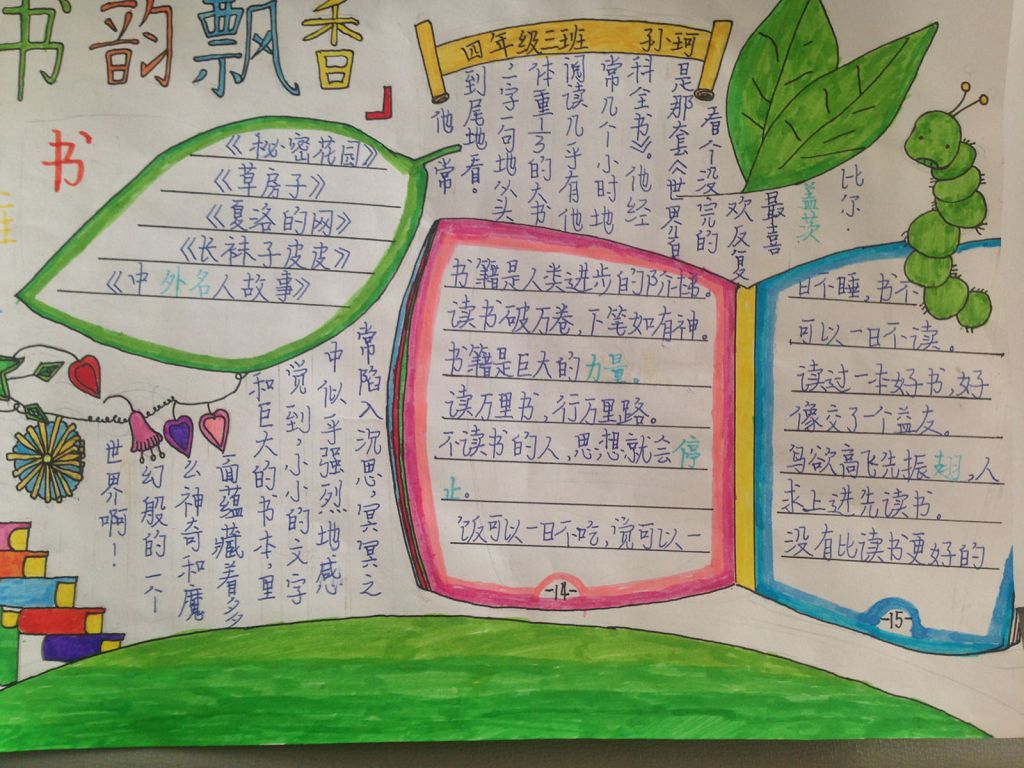 书韵飘香
书
四年级三班 孙珂
《秘密花园》
《草房子》
《夏洛的网》
《长袜子皮皮》
《中外名人故事》
比尔·
盖茨
最喜
欢反复
看个没完的
是那套《世界百
科全书》。他经
常几个小时地
阅读几乎有他
体重1/3的大书
,一字一句地从头
到尾地看。
他常
常陷入沉思,冥冥之
中似乎强烈地感
觉到,小小的文字
和巨大的书本,里
面蕴藏着多
么神奇和魔
幻般的一个
世界啊！
书籍是人类进步的阶梯。
读书破万卷,下笔如有神。
书籍是巨大的力量。
读万里书,行万里路。
不读书的人,思想就会停
止。
饭可以一日不吃,觉可以一
-14-
日不睡,书不
可以一日不读。
读过一本好书,好
像交了一个益友。
鸟欲高飞先振翅,人
求上进先读书。
没有比读书更好的
-15-